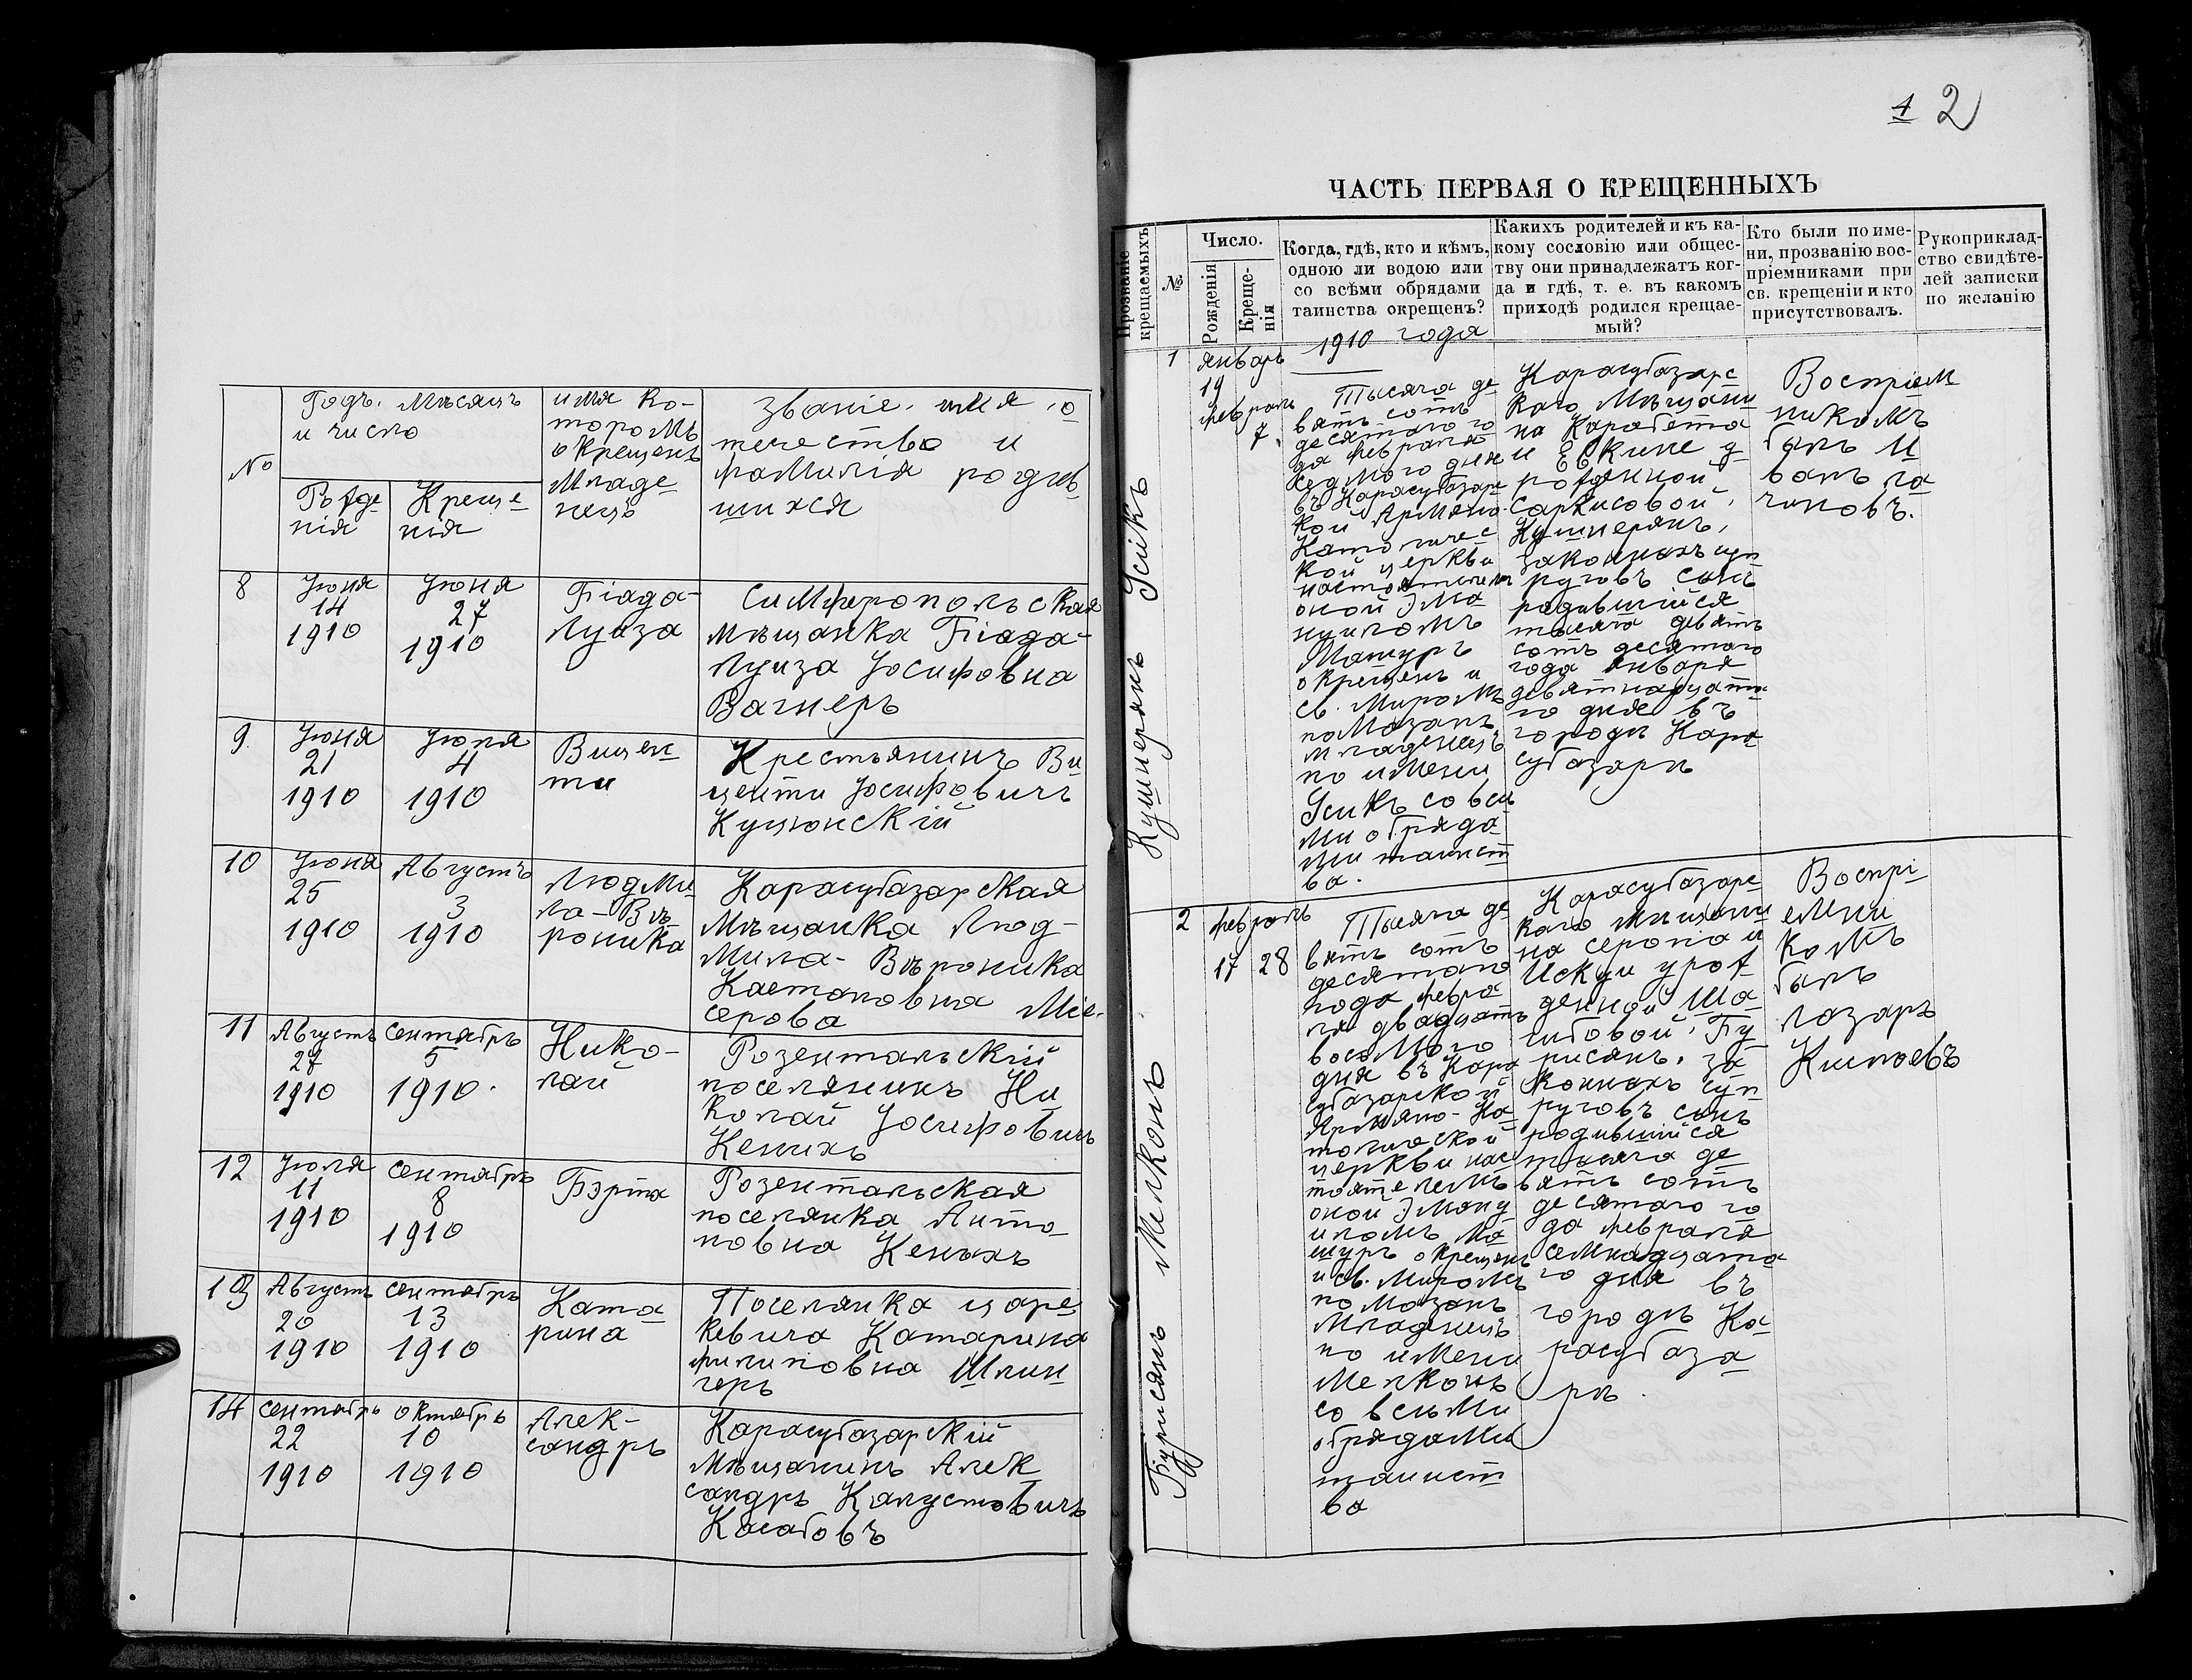 №
Годъ. Мѣсяцъ
и число
Рожде
нія
Креще
нія
имя ко-
торомъ
окрещенъ
Младе
нецъ
Званіе. имя. о
течество и
фамилія родив
шихся
8
Іюня
14
1910
Іюня
27
1910
Піада-
Луиза
Симферопольская
мѣщанка Піада-
Луиза Іосифовна
Вагнеръ
9
Іюня
21
1910
Іюля
4
1910
Вицен
ти
Крестьянинъ Ви
центи Іосифовичъ
10
Іюня
25
1910
Августъ
3
1910
Людми
ла-Вѣ
роника
Карасубазарская
мѣщанка Люд-
мила-Вѣроника
Каетановна Міе-
серова
11
Августъ
27
1910
Сентябрь
5
1910.
Нико-
лай
Розентальскій
поселянинъ Ни
колай Іосифовичъ
Кенихъ
12
Іюля
11
1910
Сентябрь
8
1910
Бэрта
Розентальская
поселянка Анто
новна Кенихъ
13
Августъ
20
1910
Сентябрь
13
1910
Ката
рина
Поселянка царе
кевича Катарина
Филиповна Шлин
геръ
14
Сентябрь
22
1910
Октябрь
10
1910
Алек-
сандръ
Карасубазарскій
Мѣщанинъ Алек
сандръ Капустовичъ
Касабовъ
1 2
ЧАСТЬ ПЕРВАЯ О КРЕЩЕННЫХЪ
Прозваніе
крещаемыхъ
№
Число.
Рожденія
Креще-
нія
Когда, гдѣ, кто и кѣмъ,
одною ли водою или
со всѣми обрядами
таинства окрещенъ?
Каихъ родителей и къ ка-
кому сословію или общес-
тву они принадлежатъ ког-
да и гдѣ, т. е. въ какомъ
приходѣ родился крещае-
мый?
Кто были по име-
ни, прозванію вос-
пріемниками при
св. крещеніи и кто
присутствовалъ.
Рукоприклад-
ство свидѣте-
лей записки
по желанію
1910 года
Кушнерянъ Усикъ
1
январь
19
февраль
7.
Тысяча де
вять сотъ
десятаго го
да февраля
седмого дня
въ Карасубазарс
кой Армяно-
Католичес
кой церкви
настоятелемъ
оной Эма
нуиломъ
Машуръ
окрещенъ и
св. Миромъ
помазанъ
младенецъ
по имени
Усикъ со всѣ
ми обряда
ми таинст
ва.
Карасубазарс
каго Мѣщани
на Карабета
и Евкине у
рожденной
Саркисовой,
Кушнерянъ,
законныхъ суп
руговъ сынъ
родившійся
тысяча девять
сотъ десятаго
года января
девятнадцата
го дня въ
городѣ Кара
субазарѣ
Воспріем
никомъ
былъ И
ванъ Га
чиновъ.
Бурисянъ Мелконъ
2
февраль
17 28
Тысяча де
вять сотъ
десятаго
года февра
ля двадцать
восьмого
дня въ Кара
субазарской
Армяно-Ка
толической
церкви нас
тоятелемъ
оной Эману
иломъ Ма
шуръ окрещенъ
и св. Миромъ
помазанъ
Младенецъ
по имени
Мелконъ
со всѣми
обрядами
таинст
ва
Карасубазарс
каго мѣщани
на серопа и
Искуи урож
денной Ша
гибовой, Бу
рисянъ. за
конныхъ суп
руговъ сынъ
родившійся
тысяча де
вять сотъ
десятаго го
да февраля
семнадцата
го дня въ
городѣ Ка
расубаза
рѣ.
Воспрі
емни
комъ
былъ
Лазарь